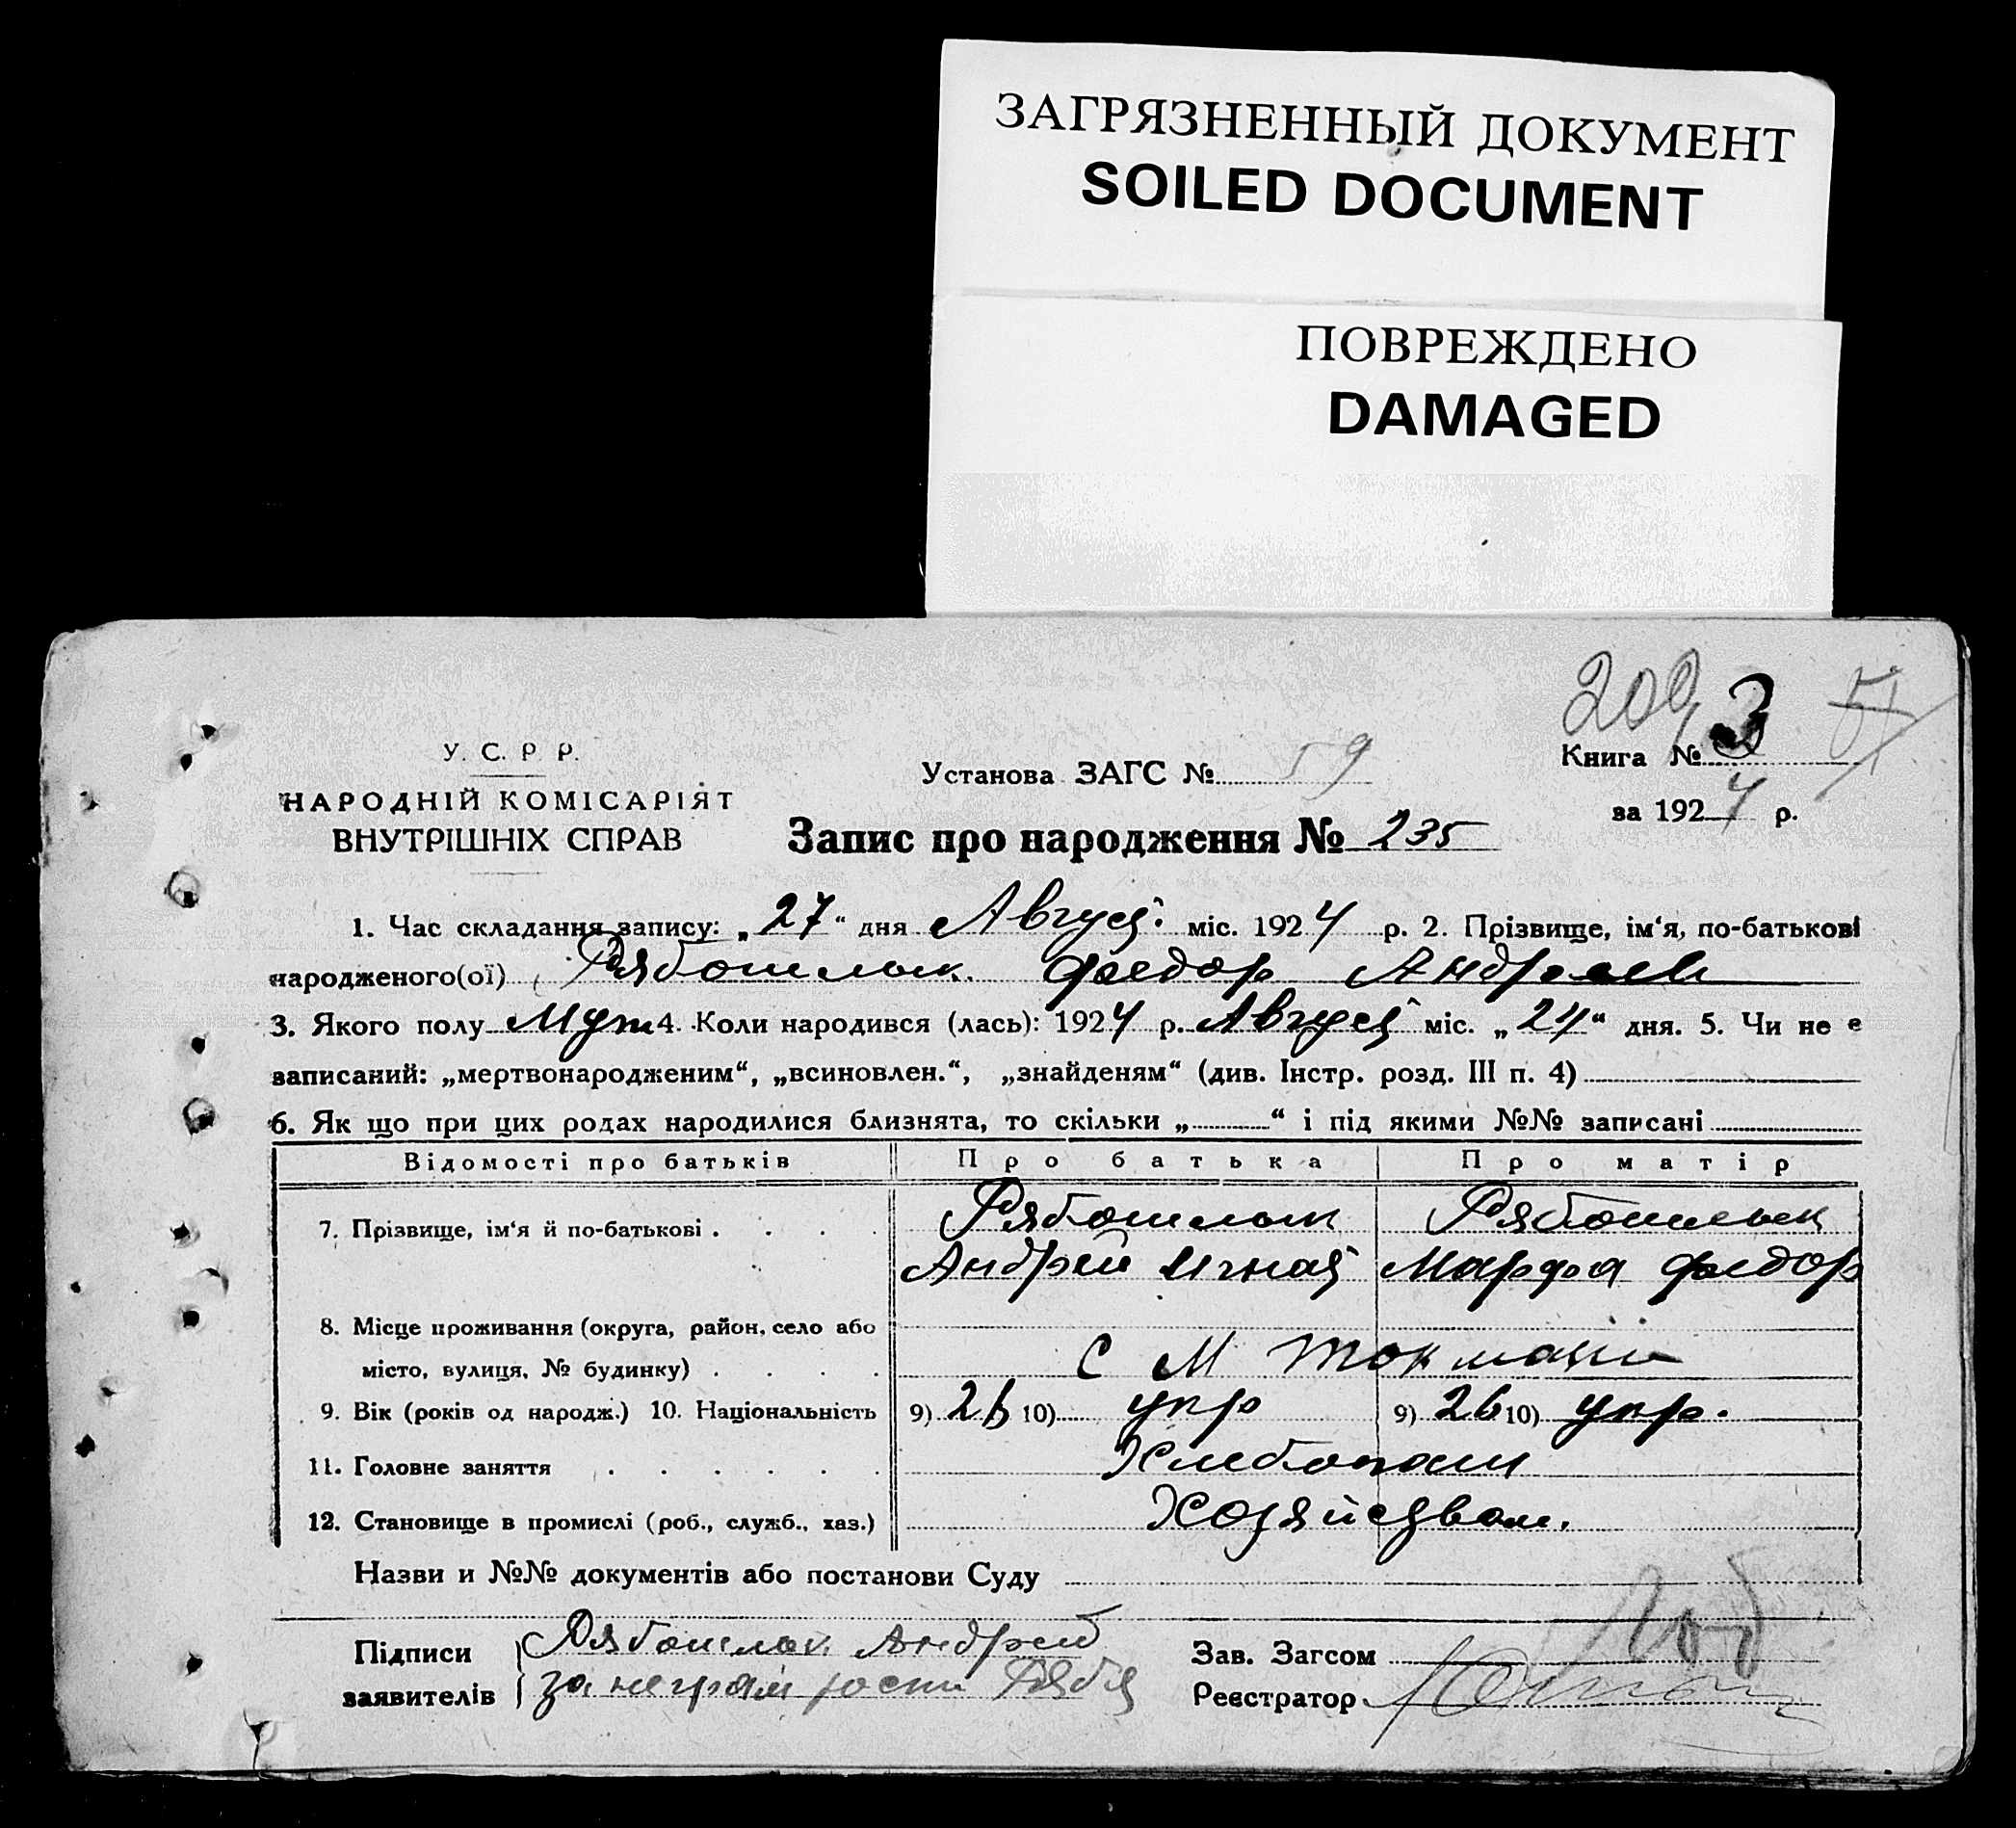 ЗАГРЯЗНЕННЫЙ ДОКУМЕНТ
SOILED DOCUMENT
ПОВРЕЖДЕНО
DAMAGED
200 3
У. С. Р Р.
НАРОДНІЙ КОМІСАРІЯТ
ВНУТРІШНІХ СПРАВ
Установа ЗАГС № 59
Книга №
за 1924 р.
Запис про народження № 235
1. Час складання запису: „27“ дня Август міс. 1924 р. 2. Прізвище, ім‘я, по-батькові
народженого(ої) Рябошлык Федор Андреев
3. Якого полу Муж 4. Коли народився (лась): 1924 р. Август міс. „24“ дня. 5. Чи не є
записаний: „мертвонародженим“, „всиновлен.“, „знайденям“ (див. Інстр. розд. III п. 4)
6. Як що при цих родах народилися близнята, то скільки „ “ і під якими №№ записані
Відомості про батьків Про батька Про матір
7. Прізвище, ім‘я й по-батькові Рябошлык Рябошлык
Андрей Игнат Марфа Федор
8. Місце проживання (округа, район, село або
місто, вулиця, № будинку) С М Токмачк
9. Вік (років од народж.) 10. Національність 9) 26 10) укр 9) 26 10) укр.
11. Головне заняття Хлебопаш
12. Становище в промислі (роб., служб., хаз.) Хозяйством.
Назви и №№ документів або постанови Суду
Підписи Рябошлык Андрей
заявителів за неграм
Зав. Загсом
Реєстратор